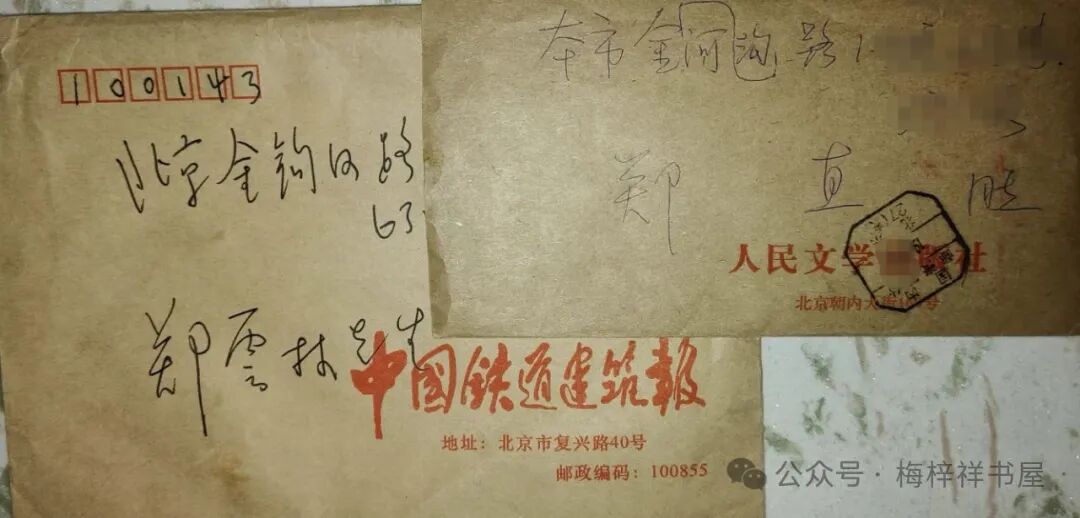 100143
北京金钩河路
63
郑云林先生
中国铁道建筑報
地址：北京市复兴路40号
邮政编码：100855
本市金河沟路1
郑直
人民文学 社
北京朝内大街 号
公众号·梅梓祥书屋